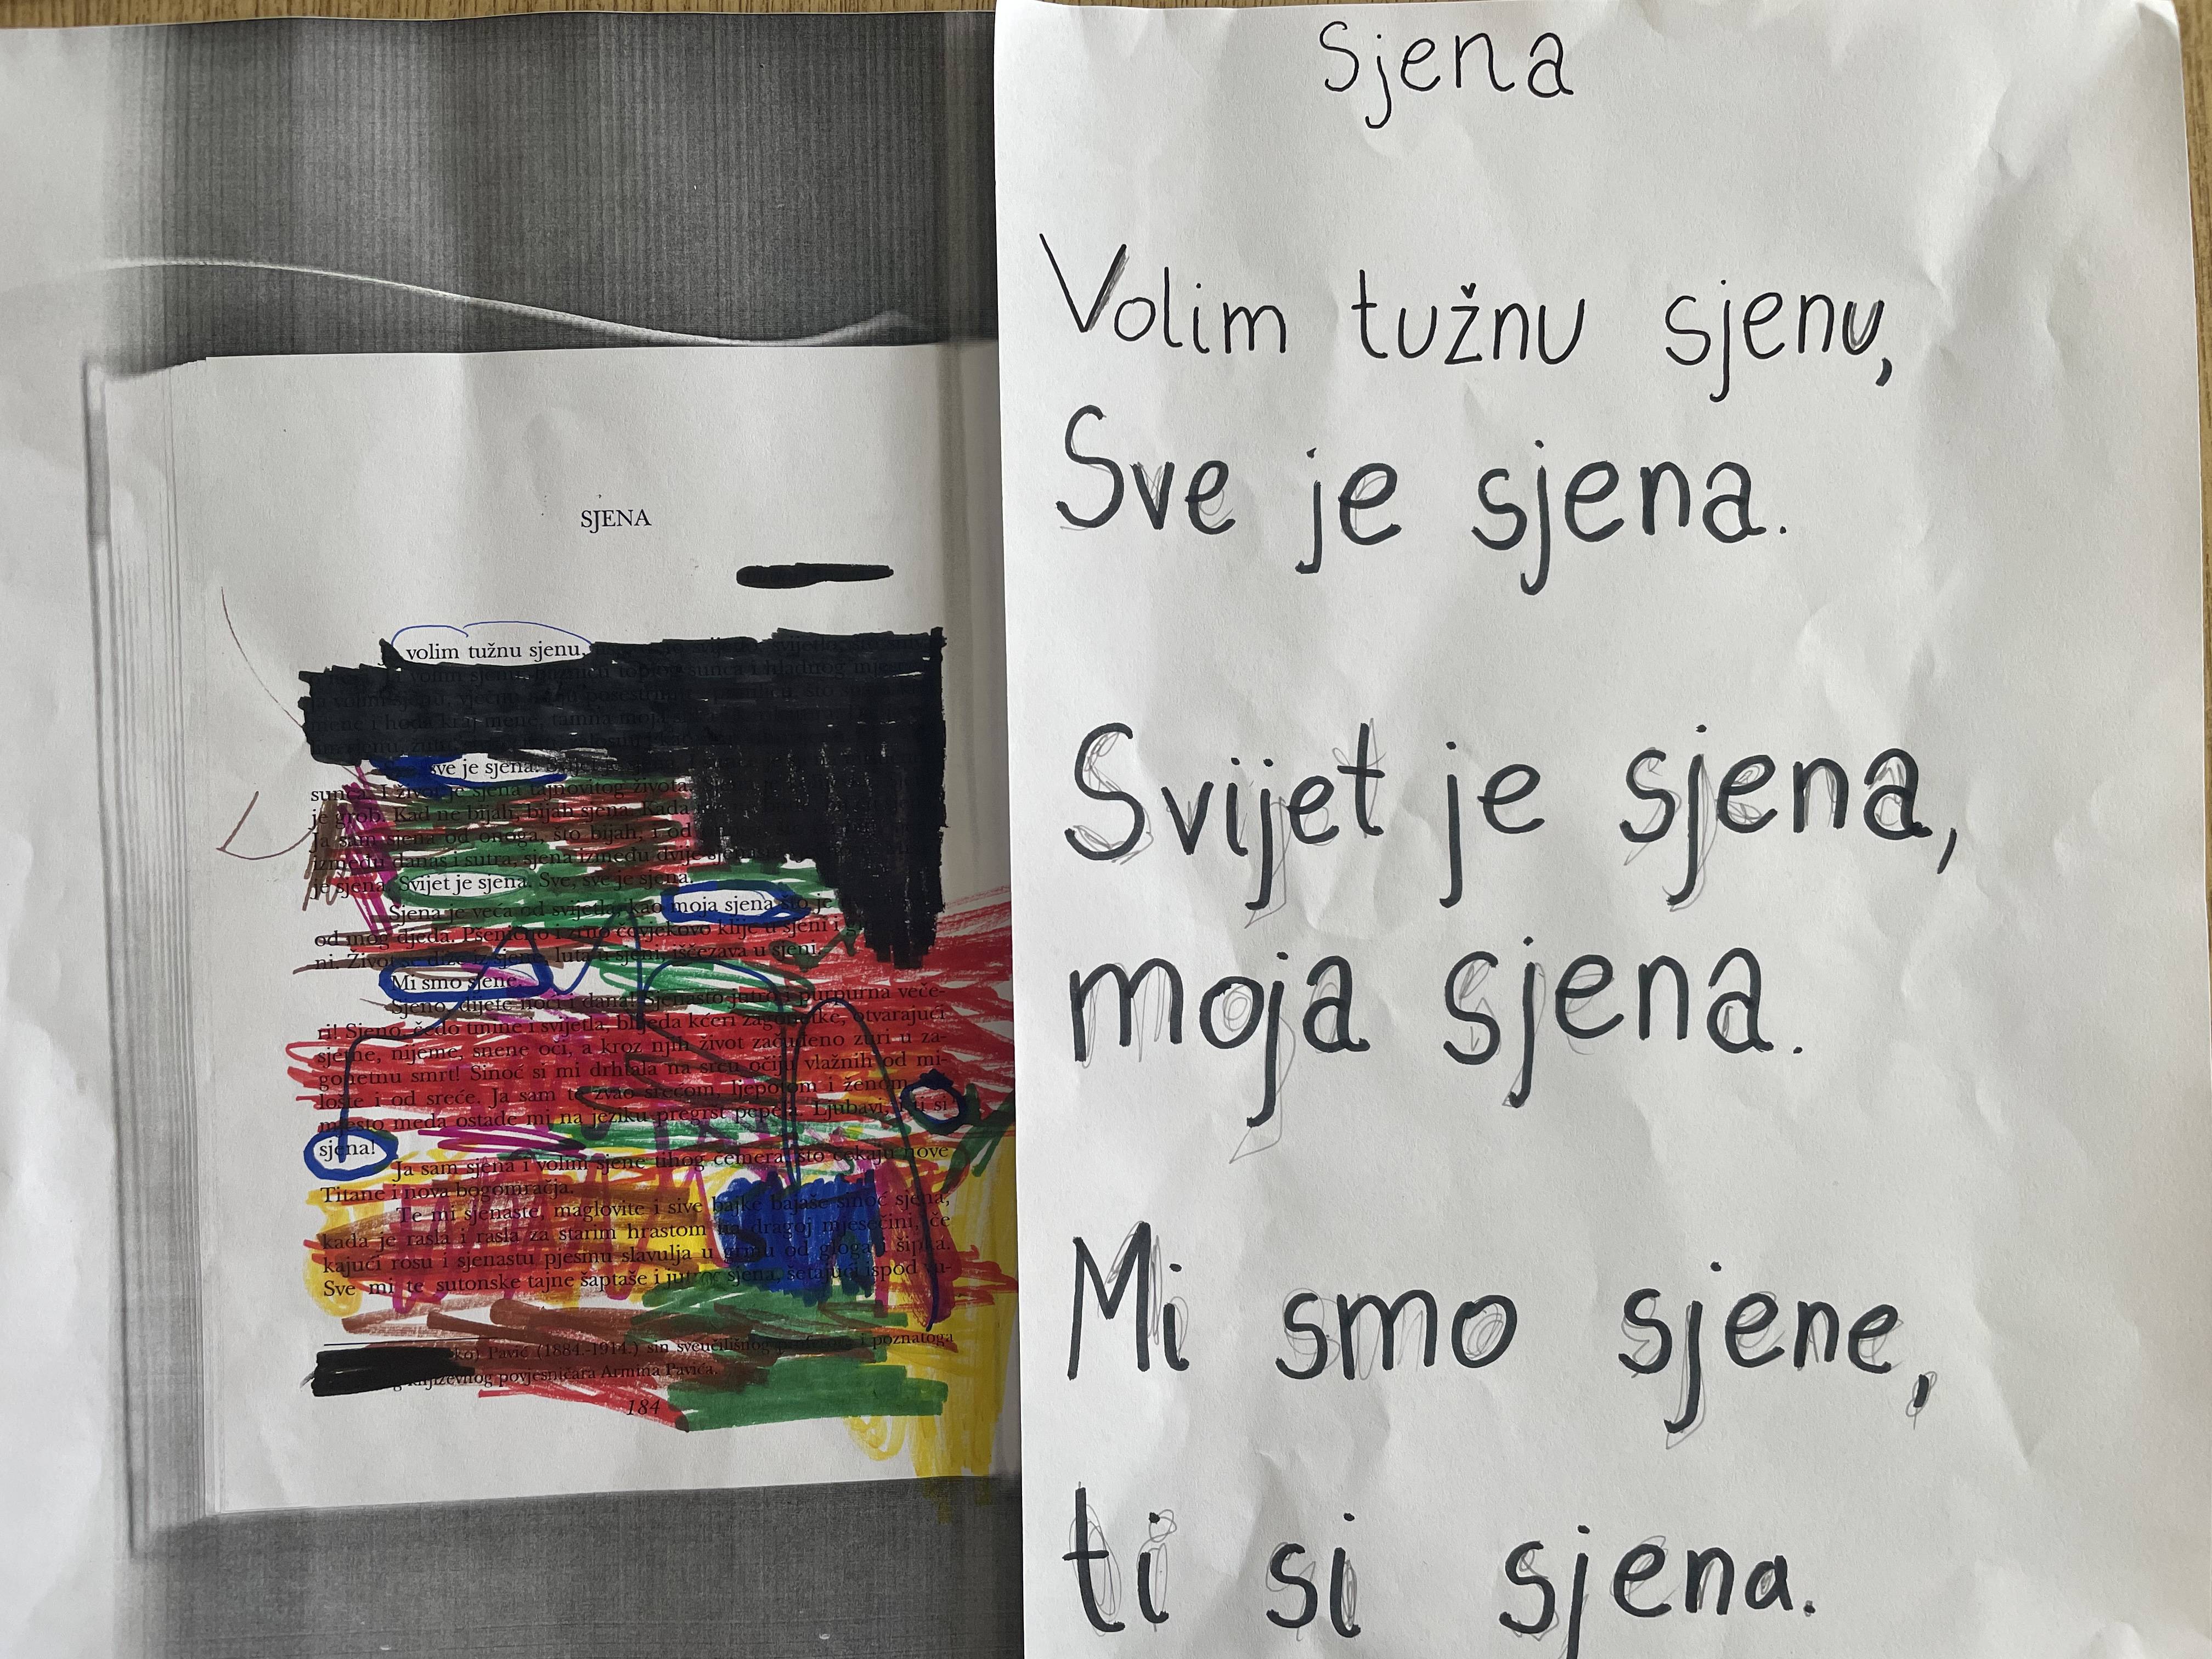 SJENA
volim tužnu sjenu,
sve je sjena!
sunca. I život je sjena tajnovitog života.
je grob. Kad ne bijah, bijah sjena. Kada
Ja sam sjena od onoga, što bijah, i od
između danas i sutra, sjena između dvije
je sjena. Svijet je sjena. Sve, sve je sjena.
Sjena je veća od svijeta, kao moja sjena što je
od mog djeda. Pšenično i zrno čovjekovo klije u sjeni i
ni. Život se diže iz sjene, luta u sjeni, iščezava u sjeni.
Mi smo sjene.
Sjeno, dijete noći i dana! Sjenasto jutro i purpurna veče-
ri! Sjeno, čedo tmine i svijetla, blijeda kćeri zagonetke, otvarajući
sjetne, nijeme, snene oči, a kroz njih život začuđeno zuri u za-
gonetnu smrt! Sinoć si mi drhtala na srcu očiju vlažnih od mi-
lošte i od sreće. Ja sam te zvao srećom, ljepotom i ženom, a
mjesto meda ostade mi na jeziku pregršt pepela. Ljubavi, i ti si
sjena!
Ja sam sjena i volim sjene tihog čemera, što čekaju nove
Titane i nova bogomračja.
Te mi sjenaste, maglovite i sive bajke bajaše sinoć sjena,
kada je rasla i rasla za starim hrastom na dragoj mjesečini, če
kajući rosu i sjenastu pjesmu slavulja u grmu od gloga i šipka.
Sve mi te sutonske tajne šaptaše i jutros sjena, šetajući ispod vu-
Pavić (1884.-1914.) sin sveučilišnog profesora i poznatoga
književnog povjesničara Armina Pavića.
184
Sjena
Volim tužnu sjenu,
Sve je sjena.
Svijet je sjena,
moja sjena.
Mi smo sjene,
ti si sjena.